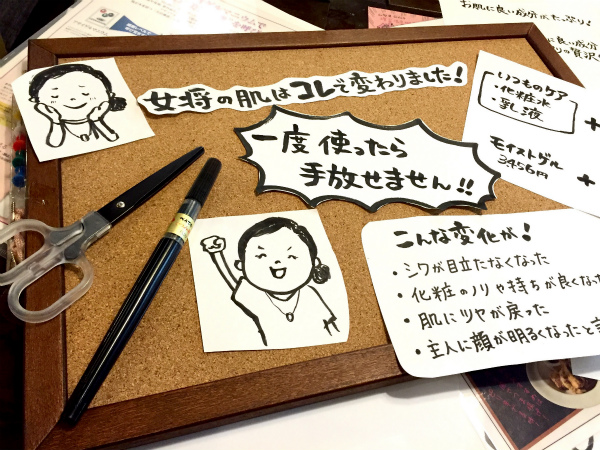 お肌に良い成分がたっぷり!
女将の肌はコレで変わりました!
一度使ったら
手放せません!!
いつものケア
・化粧水
・乳液
+
モイストゲル
3456円
+
こんな変化が!
・シワが目立たなくなった
・化粧のノリや持ちが良くなっ
・肌にツヤが戻った
・主人に顔が明るくなったと